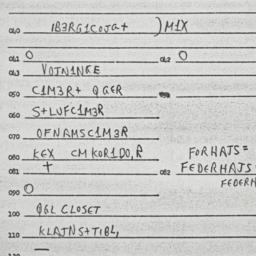 010 IB3RG1COJG+ )M1X
011 O 012 O
013 VOJN1NGE
050 C1M3R+ QGER
060 S+LUFC1M3R
070 OFNAMSC1M3R
080 KEX CMKOR1DO,R FORHAJS=
081 + 082 FEDERHAJS=
FEDERH
090 O
100 QGL CLOSET
110 KLAJNS+TIBL,